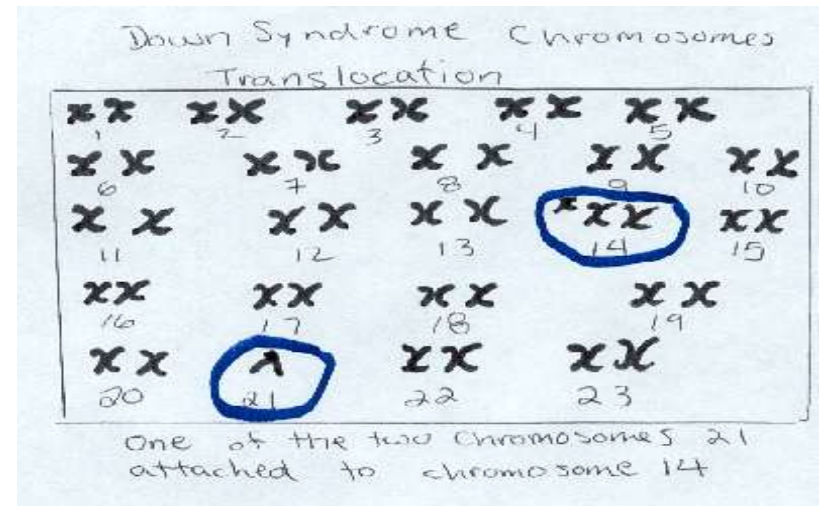 Down Syndrome Chromosomes
Translocation
1 2 3 4 5
6 7 8 9 10
11 12 13 14 15
16 17 18 19
20 21 22 23
One of the two chromosomes 21
attached to chromosome 14